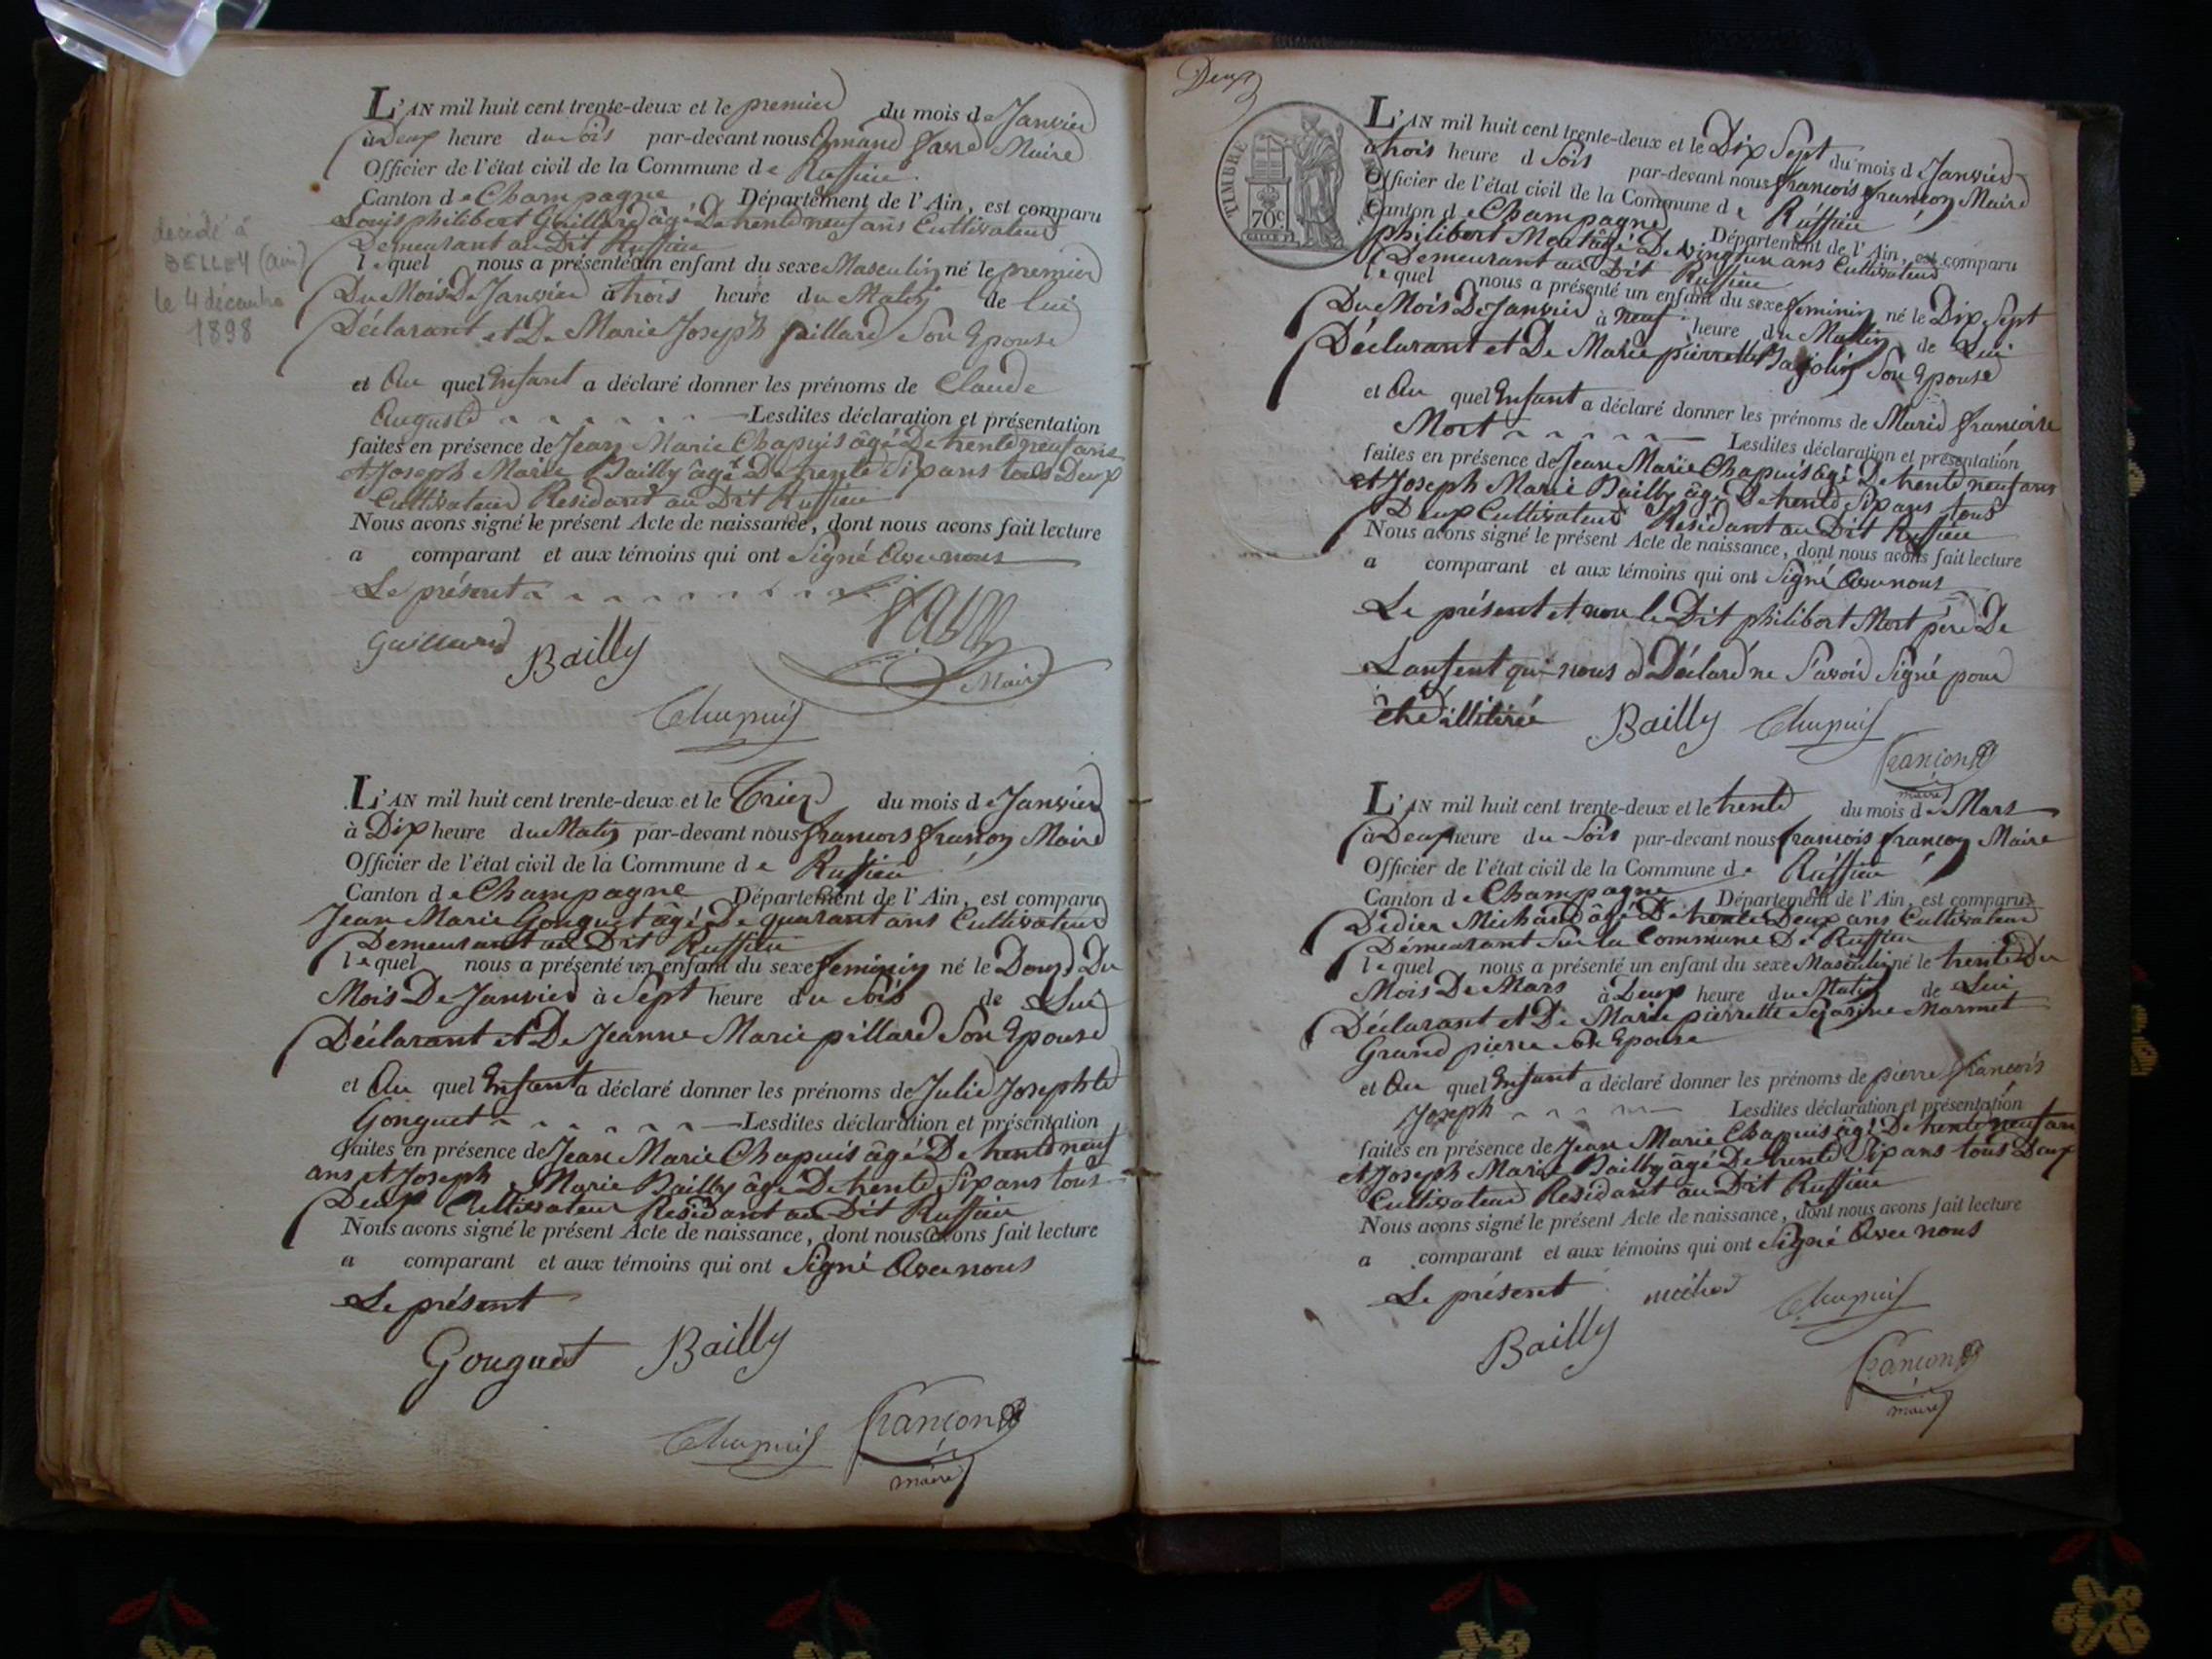 décédé à
BELLEY (Ain)
le 4 décembre
1898
L'AN mil huit cent trente-deux et le premier du mois de Janvier
à Deux heure du Soir par-devant nous Armand favre Maire
Officier de l'état civil de la Commune de Ruffieu
Canton de Champagne Département de l'Ain, est comparu
Louis philibert Guillard âgé De trente neuf ans Cultivateur
Demeurant au Dit Ruffieu
lequel nous a présenté un enfant du sexe Masculin né le premier
Du Mois De Janvier à trois heure du Matin de lui
Déclarant et De Marie Joseph pillard Son Epouse
et Au quel Enfant a déclaré donner les prénoms de Claude
Auguste Lesdites déclaration et présentation
faites en présence de Jean Marie Chapuis âgé De trente neuf ans
et Joseph Marie Bailly âgé De trente Six ans tous Deux
Cultivateur Residant au Dit Ruffieu
Nous avons signé le présent Acte de naissance, dont nous avons fait lecture
a comparant et aux témoins qui ont Signé Avec nous
Le présent
Guillard Bailly favre
Maire
Chapuis
L'AN mil huit cent trente-deux et le Treize du mois de Janvier
à Dix heure du Matin par-devant nous francois françon Maire
Officier de l'état civil de la Commune de Ruffieu
Canton de Champagne Département de l'Ain, est comparu
Jean Marie Gonguet âgé De quarant ans Cultivateur
Demeurant au Dit Ruffieu
lequel nous a présenté un enfant du sexe feminin né le Douze Du
Mois De Janvier à Sept heure du Soir de Lui
Déclarant et De Jeanne Marie pillard Son Epouse
et Au quel Enfant a déclaré donner les prénoms de Julie Josephte
Gonguet Lesdites déclaration et présentation
faites en présence de Jean Marie Chapuis âgé De trente neuf
ans et Joseph Marie Bailly âgé De trente Six ans tous
Deux Cultivateur Residant au Dit Ruffieu
Nous avons signé le présent Acte de naissance, dont nous avons fait lecture
a comparant et aux témoins qui ont Signé Avec nous
Le présent
Gonguet Bailly
Chapuis françon
maire
Deux
TIMBRE
70 c.
L'AN mil huit cent trente-deux et le Dix Sept du mois de Janvier
à trois heure d Soir par-devant nous francois françon Maire
Officier de l'état civil de la Commune de Ruffieu
Canton de Champagne Département de l'Ain, est comparu
philibert Mort âgé De vingt un ans Cultivateur
Demeurant au Dit Ruffieu
lequel nous a présenté un enfant du sexe feminin né le Dix Sept
Du Mois De Janvier à neuf heure du Matin de Lui
Déclarant et De Marie pierrette Bajolin Son Epouse
et Au quel Enfant a déclaré donner les prénoms de Marie francoise
Mort Lesdites déclaration et présentation
faites en présence de Jean Marie Chapuis âgé De trente neuf ans
et Joseph Marie Bailly âgé De trente Six ans tous
Deux Cultivateur Residant au Dit Ruffieu
Nous avons signé le présent Acte de naissance, dont nous avons fait lecture
a comparant et aux témoins qui ont Signé Avec nous
Le présent et non le Dit philibert Mort père De
Lanfent qui nous a Déclaré ne Savoir Signé pour
être illiteré Bailly Chapuis
françon
maire
L'AN mil huit cent trente-deux et le trente du mois de Mars
à Deux heure du Soir par-devant nous francois françon Maire
Officier de l'état civil de la Commune de Ruffieu
Canton de Champagne Département de l'Ain, est comparu
Didier Michaud âgé De trente Deux ans Cultivateur
Démeurant Sur la Commune De Ruffieu
lequel nous a présenté un enfant du sexe Masculin né le trente Du
Mois De Mars à Deux heure du Matin de Lui
Déclarant et De Marie pierrette Marmet
Grand pierre Son Epouse
et Au quel Enfant a déclaré donner les prénoms de pierre francois
Joseph Lesdites déclaration et présentation
faites en présence de Jean Marie Chapuis âgé De trente neuf ans
et Joseph Marie Bailly âgé De trente Six ans tous Deux
Cultivateur Residant au Dit Ruffieu
Nous avons signé le présent Acte de naissance, dont nous avons fait lecture
a comparant et aux témoins qui ont Signé Avec nous
Le présent Chapuis
Bailly
françon
maire